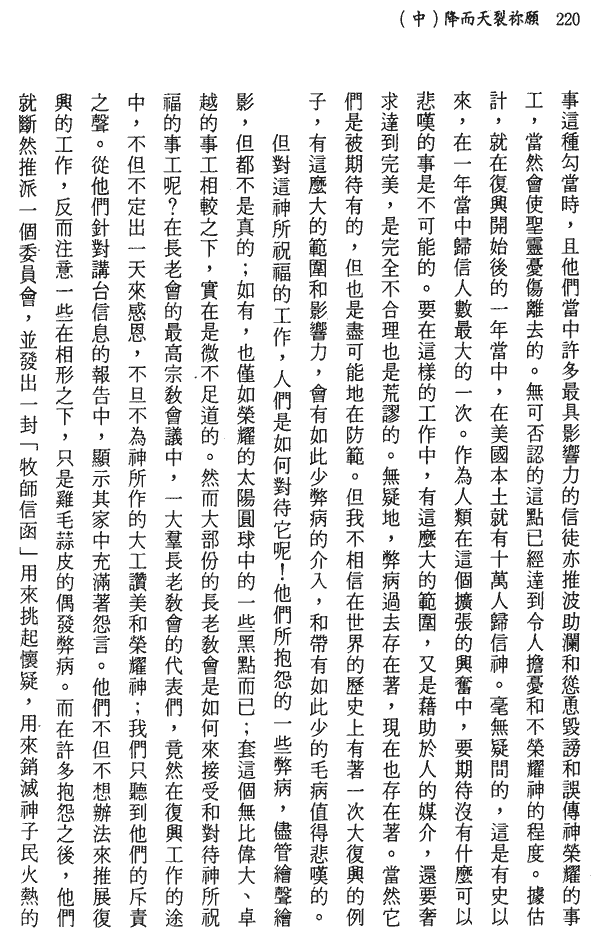 220 願祢裂天而降(中)
事這種勾當時，且他們當中許多最具影響力的信徒亦推波助瀾和慫恿毀謗和誤傳神榮耀的事
工，當然會使聖靈憂傷離去的。無可否認的這點已經達到令人擔憂和不榮耀神的程度。據估
計，就在復興開始後的一年當中，在美國本土就有十萬人歸信神。毫無疑問的，這是有史以
來，在一年當中歸信人數最大的一次。作為人類在這個擴張的興奮中，要期待沒有什麼可以
悲嘆的事是不可能的。要在這樣的工作中，有這麼大的範圍，又是藉助於人的媒介，還要奢
求達到完美，是完全不合理也是荒謬的。無疑地，弊病過去存在著，現在也存在著。當然它
們是被期待有的，但也是盡可能地在防範。但我不相信在世界的歷史上有著一次大復興的例
子，有這麼大的範圍和影響力，會有如此少弊病的介入，和帶有如此少的毛病值得悲嘆的。
但對這神所祝福的工作，人們是如何對待它呢！他們所抱怨的一些弊病，儘管繪聲繪
影，但都不是真的；如有，也僅如榮耀的太陽圓球中的一些黑點而已；套這個無比偉大、卓
越的事工相較之下，實在是微不足道的。然而大部份的長老教會是如何來接受和對待神所祝
福的事工呢？在長老會的最高宗教會議中，一大羣長老教會的代表們，竟然在復興工作的途
中，不但不定出一天來感恩，不旦不為神所作的大工讚美和榮耀神；我們只聽到他們的斥責
之聲。從他們針對講台信息的報告中，顯示其家中充滿著怨言。他們不但不想辦法來推展復
興的工作，反而注意一些在相形之下，只是雞毛蒜皮的偶發弊病。而在許多抱怨之後，他們
就斷然推派一個委員會，並發出一封「牧師信函」用來挑起懷疑，用來銷滅神子民火熱的